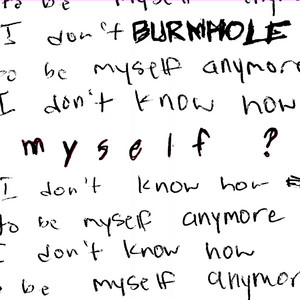 to be myself anymore
I don't BURNHOLE
to be myself anymore
I don't know how
myself ?
I don't know how
to be myself anymore
I don't know how
o be myself anymor